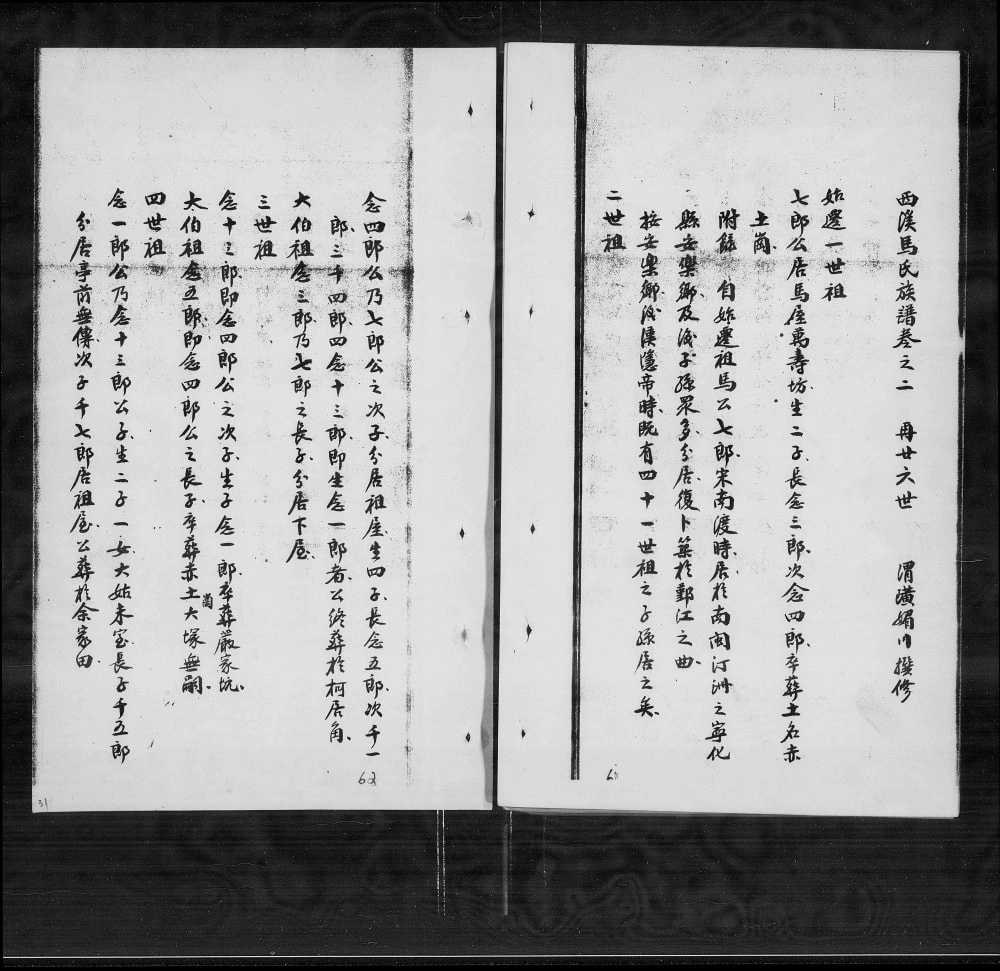 西溪馬氏族譜卷之二　再廿六世　渭濱媚川撰修
始遷一世祖
七郎公居馬屋萬壽坊生二子長念三郎次念四郎卒葬土名赤
土崗
附錄　自始遷祖馬公七郎宋南渡時居於南閩汀洲之寧化
縣安樂鄉及後子孫眾多分居復卜築於鄞江之曲
按安樂鄉後溪憲帝時既有四十一世祖之子孫居之矣
二世祖
6
念四郎公乃七郎公之次子分居祖屋生四子長念五郎次千一
郎三千四郎四念十三郎即生念一郎者公終葬於柯居角
大伯祖念三郎乃七郎之長子分居下屋
三世祖
念十三郎即念四郎公之次子生子念一郎卒葬嚴家坑
太伯祖念五郎即念四郎公之長子卒葬赤土崗大塚無嗣
四世祖
念一郎公乃念十三郎公子生二子一女大姑未室長子千五郎
分居亭前無傳次子千七郎居祖屋公葬於余家田
62
31